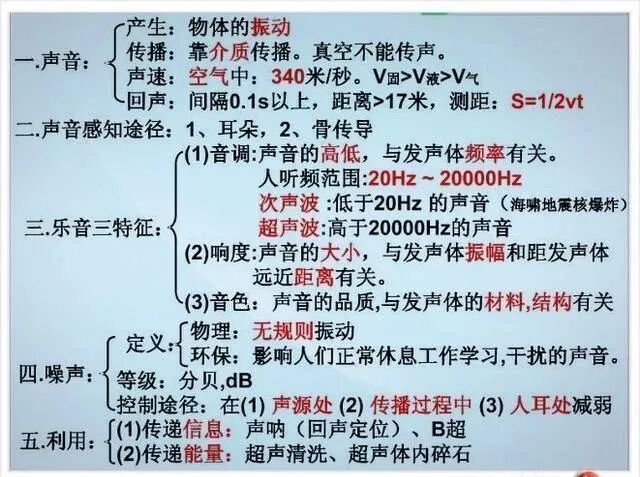 产生：物体的振动
一.声音：
传播：靠介质传播。真空不能传声。
声速：空气中：340米/秒。V固>V液>V气
回声：间隔0.1s以上，距离>17米，测距：S=1/2vt
二.声音感知途径：1、耳朵，2、骨传导
(1)音调:声音的高低，与发声体频率有关。
人听频范围:20Hz ~ 20000Hz
次声波 :低于20Hz 的声音（海啸地震核爆炸）
三.乐音三特征：
超声波:高于20000Hz的声音
(2)响度:声音的大小，与发声体振幅和距发声体
远近距离有关。
(3)音色：声音的品质,与发声体的材料,结构有关
物理：无规则振动
定义
环保：影响人们正常休息工作学习,干扰的声音。
四.噪声：
等级：分贝,dB
控制途径：在(1) 声源处 (2) 传播过程中 (3) 人耳处减弱
五.利用：
(1)传递信息：声呐（回声定位）、B超
(2)传递能量：超声清洗、超声体内碎石